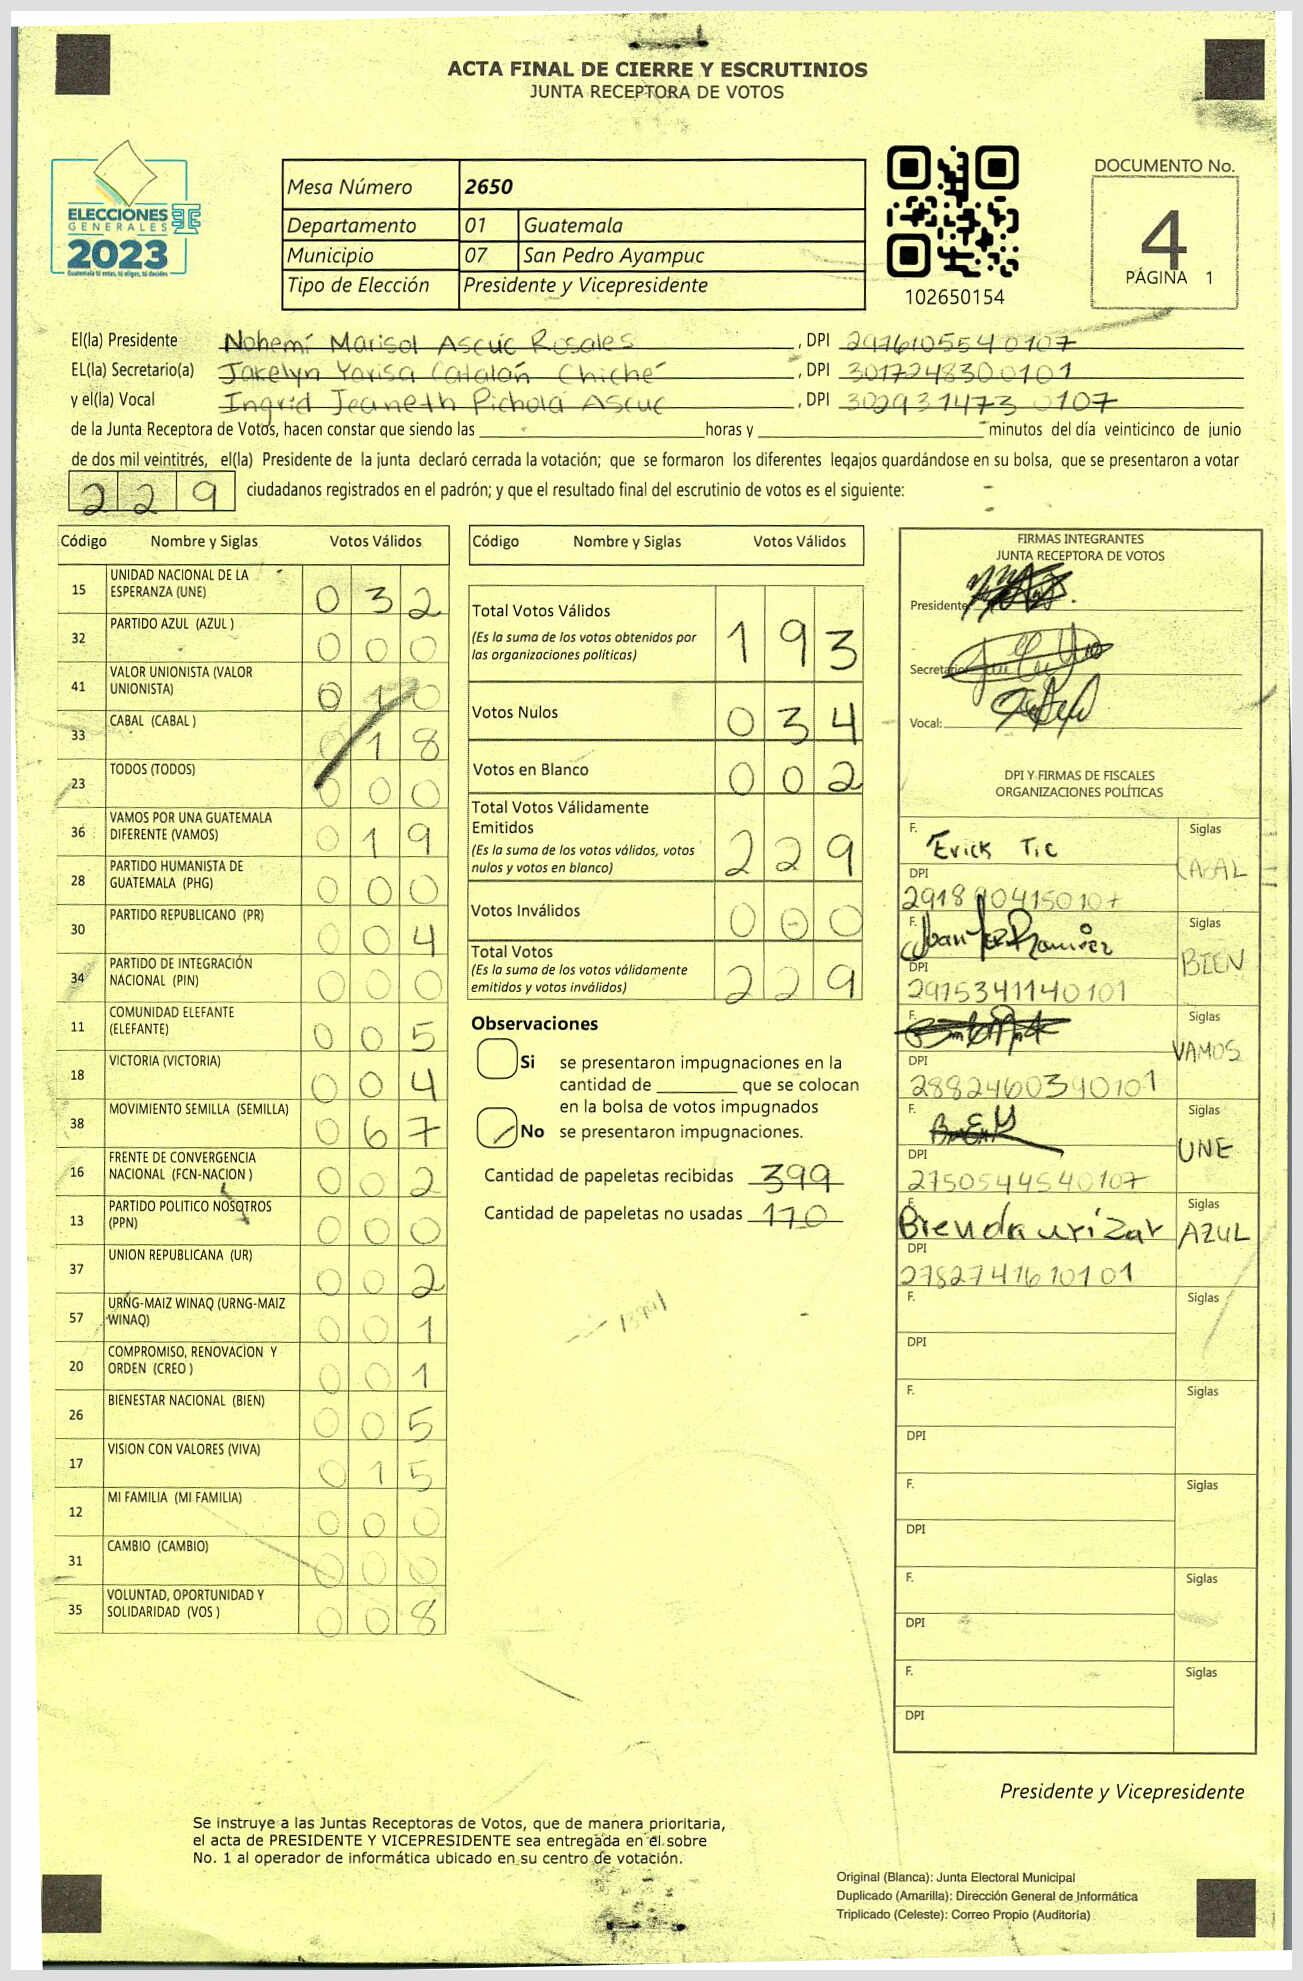 ACTA FINAL DE CIERRE Y ESCRUTINIOS
JUNTA RECEPTORA DE VOTOS
ELECCIONES
GENERALES
2023
Guatemala tú votas, tú eliges, tú decides
Mesa Número 2650
Departamento 01 Guatemala
Municipio 07 San Pedro Ayampuc
Tipo de Elección Presidente y Vicepresidente
102650154
DOCUMENTO No.
4
PÁGINA 1
El(la) Presidente Nohemí Marisol Ascuc Rosales, DPI 2976105540107
EL(la) Secretario(a) Jakelyn Yarisa Catalán Chiché, DPI 3017248300101
y el(la) Vocal Ingrid Jeaneth Pichola Ascuc, DPI 3029314730107
de la Junta Receptora de Votos, hacen constar que siendo las horas y minutos del día veinticinco de junio
de dos mil veintitrés, el(la) Presidente de la junta declaró cerrada la votación; que se formaron los diferentes legajos guardándose en su bolsa, que se presentaron a votar
229 ciudadanos registrados en el padrón; y que el resultado final del escrutinio de votos es el siguiente:
Código Nombre y Siglas Votos Válidos
15 UNIDAD NACIONAL DE LA
ESPERANZA (UNE) 032
32 PARTIDO AZUL (AZUL ) 000
41 VALOR UNIONISTA (VALOR
UNIONISTA) 010
33 CABAL (CABAL ) 018
23 TODOS (TODOS) 000
36 VAMOS POR UNA GUATEMALA
DIFERENTE (VAMOS) 019
28 PARTIDO HUMANISTA DE
GUATEMALA (PHG) 000
30 PARTIDO REPUBLICANO (PR) 004
34 PARTIDO DE INTEGRACIÓN
NACIONAL (PIN) 000
11 COMUNIDAD ELEFANTE
(ELEFANTE) 005
18 VICTORIA (VICTORIA) 004
38 MOVIMIENTO SEMILLA (SEMILLA) 067
16 FRENTE DE CONVERGENCIA
NACIONAL (FCN-NACION ) 002
13 PARTIDO POLITICO NOSOTROS
(PPN) 000
37 UNION REPUBLICANA (UR) 002
57 URNG-MAIZ WINAQ (URNG-MAIZ
WINAQ) 001
20 COMPROMISO, RENOVACION Y
ORDEN (CREO ) 001
26 BIENESTAR NACIONAL (BIEN) 005
17 VISION CON VALORES (VIVA) 015
12 MI FAMILIA (MI FAMILIA) 000
31 CAMBIO (CAMBIO) 000
35 VOLUNTAD, OPORTUNIDAD Y
SOLIDARIDAD (VOS ) 008
Código Nombre y Siglas Votos Válidos
Total Votos Válidos 193
(Es la suma de los votos obtenidos por
las organizaciones políticas)
Votos Nulos 034
Votos en Blanco 002
Total Votos Válidamente
Emitidos 229
(Es la suma de los votos válidos, votos
nulos y votos en blanco)
Votos Inválidos 000
Total Votos 229
(Es la suma de los votos válidamente
emitidos y votos inválidos)
Observaciones
Si se presentaron impugnaciones en la
cantidad de que se colocan
en la bolsa de votos impugnados
No se presentaron impugnaciones.
Cantidad de papeletas recibidas 399
Cantidad de papeletas no usadas 170
FIRMAS INTEGRANTES
JUNTA RECEPTORA DE VOTOS
Presidente
Secretario
Vocal:
DPI Y FIRMAS DE FISCALES
ORGANIZACIONES POLÍTICAS
F. Erick Tic Siglas CABAL
DPI
2918904150107
F. Juan Ramirez Siglas BIEN
DPI
2975341140101
F. Siglas VAMOS
DPI
2882460390101
F. Siglas UNE
DPI
2750544540107
F. Brenda urizar Siglas AZUL
DPI
2782741610101
F. Siglas
DPI
F. Siglas
DPI
F. Siglas
DPI
F. Siglas
DPI
F. Siglas
DPI
Presidente y Vicepresidente
Se instruye a las Juntas Receptoras de Votos, que de manera prioritaria,
el acta de PRESIDENTE Y VICEPRESIDENTE sea entregada en el sobre
No. 1 al operador de informática ubicado en su centro de votación.
Original (Blanca): Junta Electoral Municipal
Duplicado (Amarilla): Dirección General de Informática
Triplicado (Celeste): Correo Propio (Auditoría)